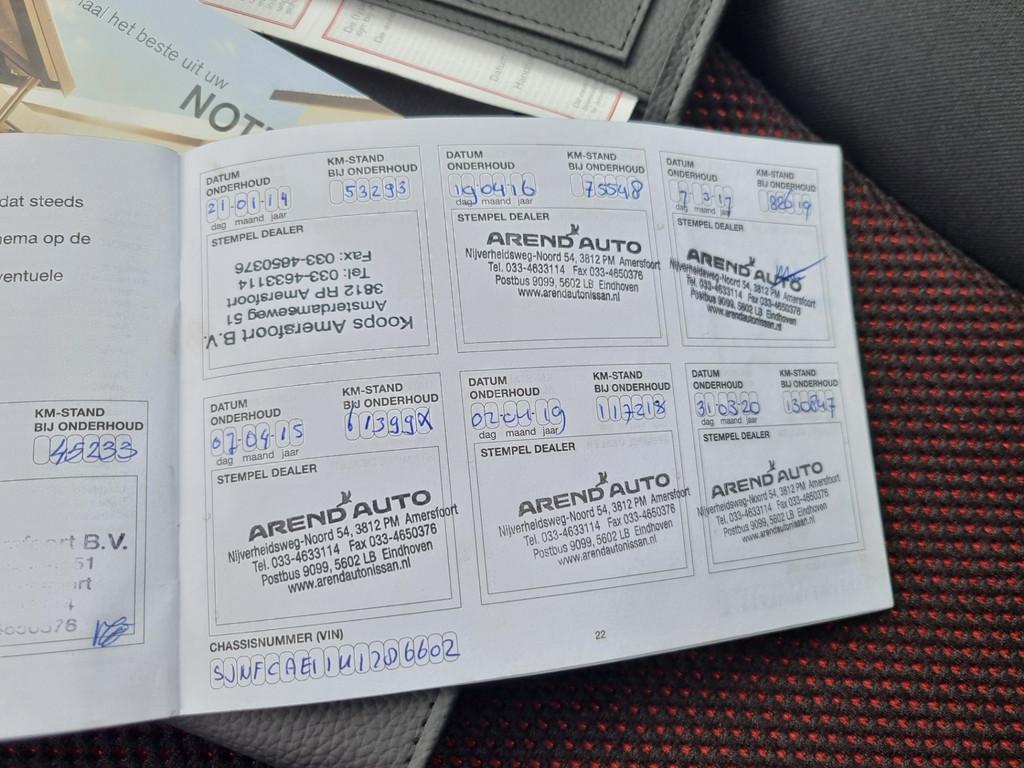 aal het beste uit uw
NOT
dat steeds
ema op de
ventuele
KM-STAND
BIJ ONDERHOUD
45233
B.V.
51
DATUM
ONDERHOUD
21-01-14
dag maand jaar
KM-STAND
BIJ ONDERHOUD
53293
STEMPEL DEALER
Koops Amersfoort B.V.
Amsterdamseweg 51
3812 RP Amersfoort
Tel: 033-4633114
Fax: 033-4650376
DATUM
ONDERHOUD
190416
dag maand jaar
KM-STAND
BIJ ONDERHOUD
75548
STEMPEL DEALER
AREND AUTO
Nijverheidsweg-Noord 54, 3812 PM Amersfoort
Tel. 033-4633114 Fax 033-4650376
Postbus 9099, 5602 LB Eindhoven
www.arendautonissan.nl
DATUM
ONDERHOUD
7-3-17
dag maand jaar
KM-STAND
BIJ ONDERHOUD
88619
STEMPEL DEALER
AREND AUTO
Nijverheidsweg-Noord 54, 3812 PM Amersfoort
Tel. 033-4633114 Fax 033-4650376
Postbus 9099, 5602 LB Eindhoven
www.arendautonissan.nl
DATUM
ONDERHOUD
07-04-15
dag maand jaar
KM-STAND
BIJ ONDERHOUD
STEMPEL DEALER
AREND AUTO
Nijverheidsweg-Noord 54, 3812 PM Amersfoort
Tel. 033-4633114 Fax 033-4650376
Postbus 9099, 5602 LB Eindhoven
www.arendautonissan.nl
DATUM
ONDERHOUD
02-04-19
dag maand jaar
KM-STAND
BIJ ONDERHOUD
117218
STEMPEL DEALER
AREND AUTO
Nijverheidsweg-Noord 54, 3812 PM Amersfoort
Tel. 033-4633114 Fax 033-4650376
Postbus 9099, 5602 LB Eindhoven
www.arendautonissan.nl
DATUM
ONDERHOUD
31-03-20
dag maand jaar
KM-STAND
BIJ ONDERHOUD
130847
STEMPEL DEALER
AREND AUTO
Nijverheidsweg-Noord 54, 3812 PM Amersfoort
Tel. 033-4633114 Fax 033-4650376
Postbus 9099, 5602 LB Eindhoven
www.arendautonissan.nl
CHASSISNUMMER (VIN)
SJNFCAE11U1206602
22